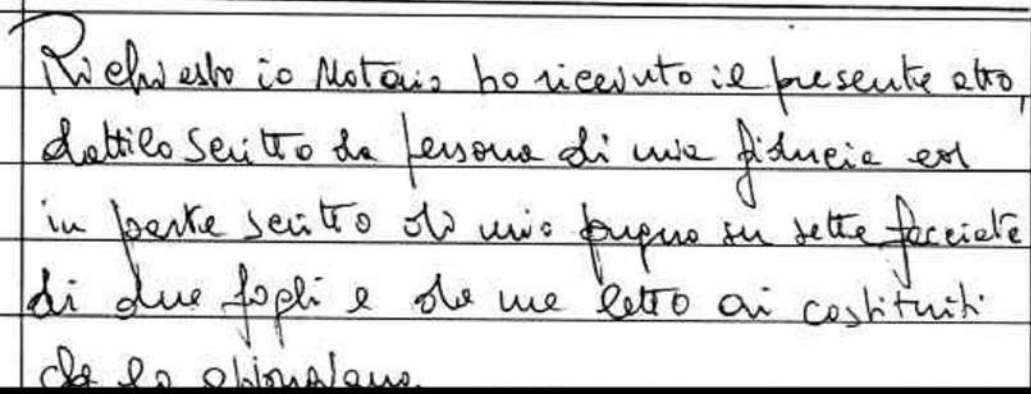 Richiesto io Notaio ho ricevuto il presente atto,
dattiloscritto da persona di mia fiducia ed
in parte scritto di mio pugno su sette facciate
di due fogli e da me letto ai costituiti
che lo approvano.